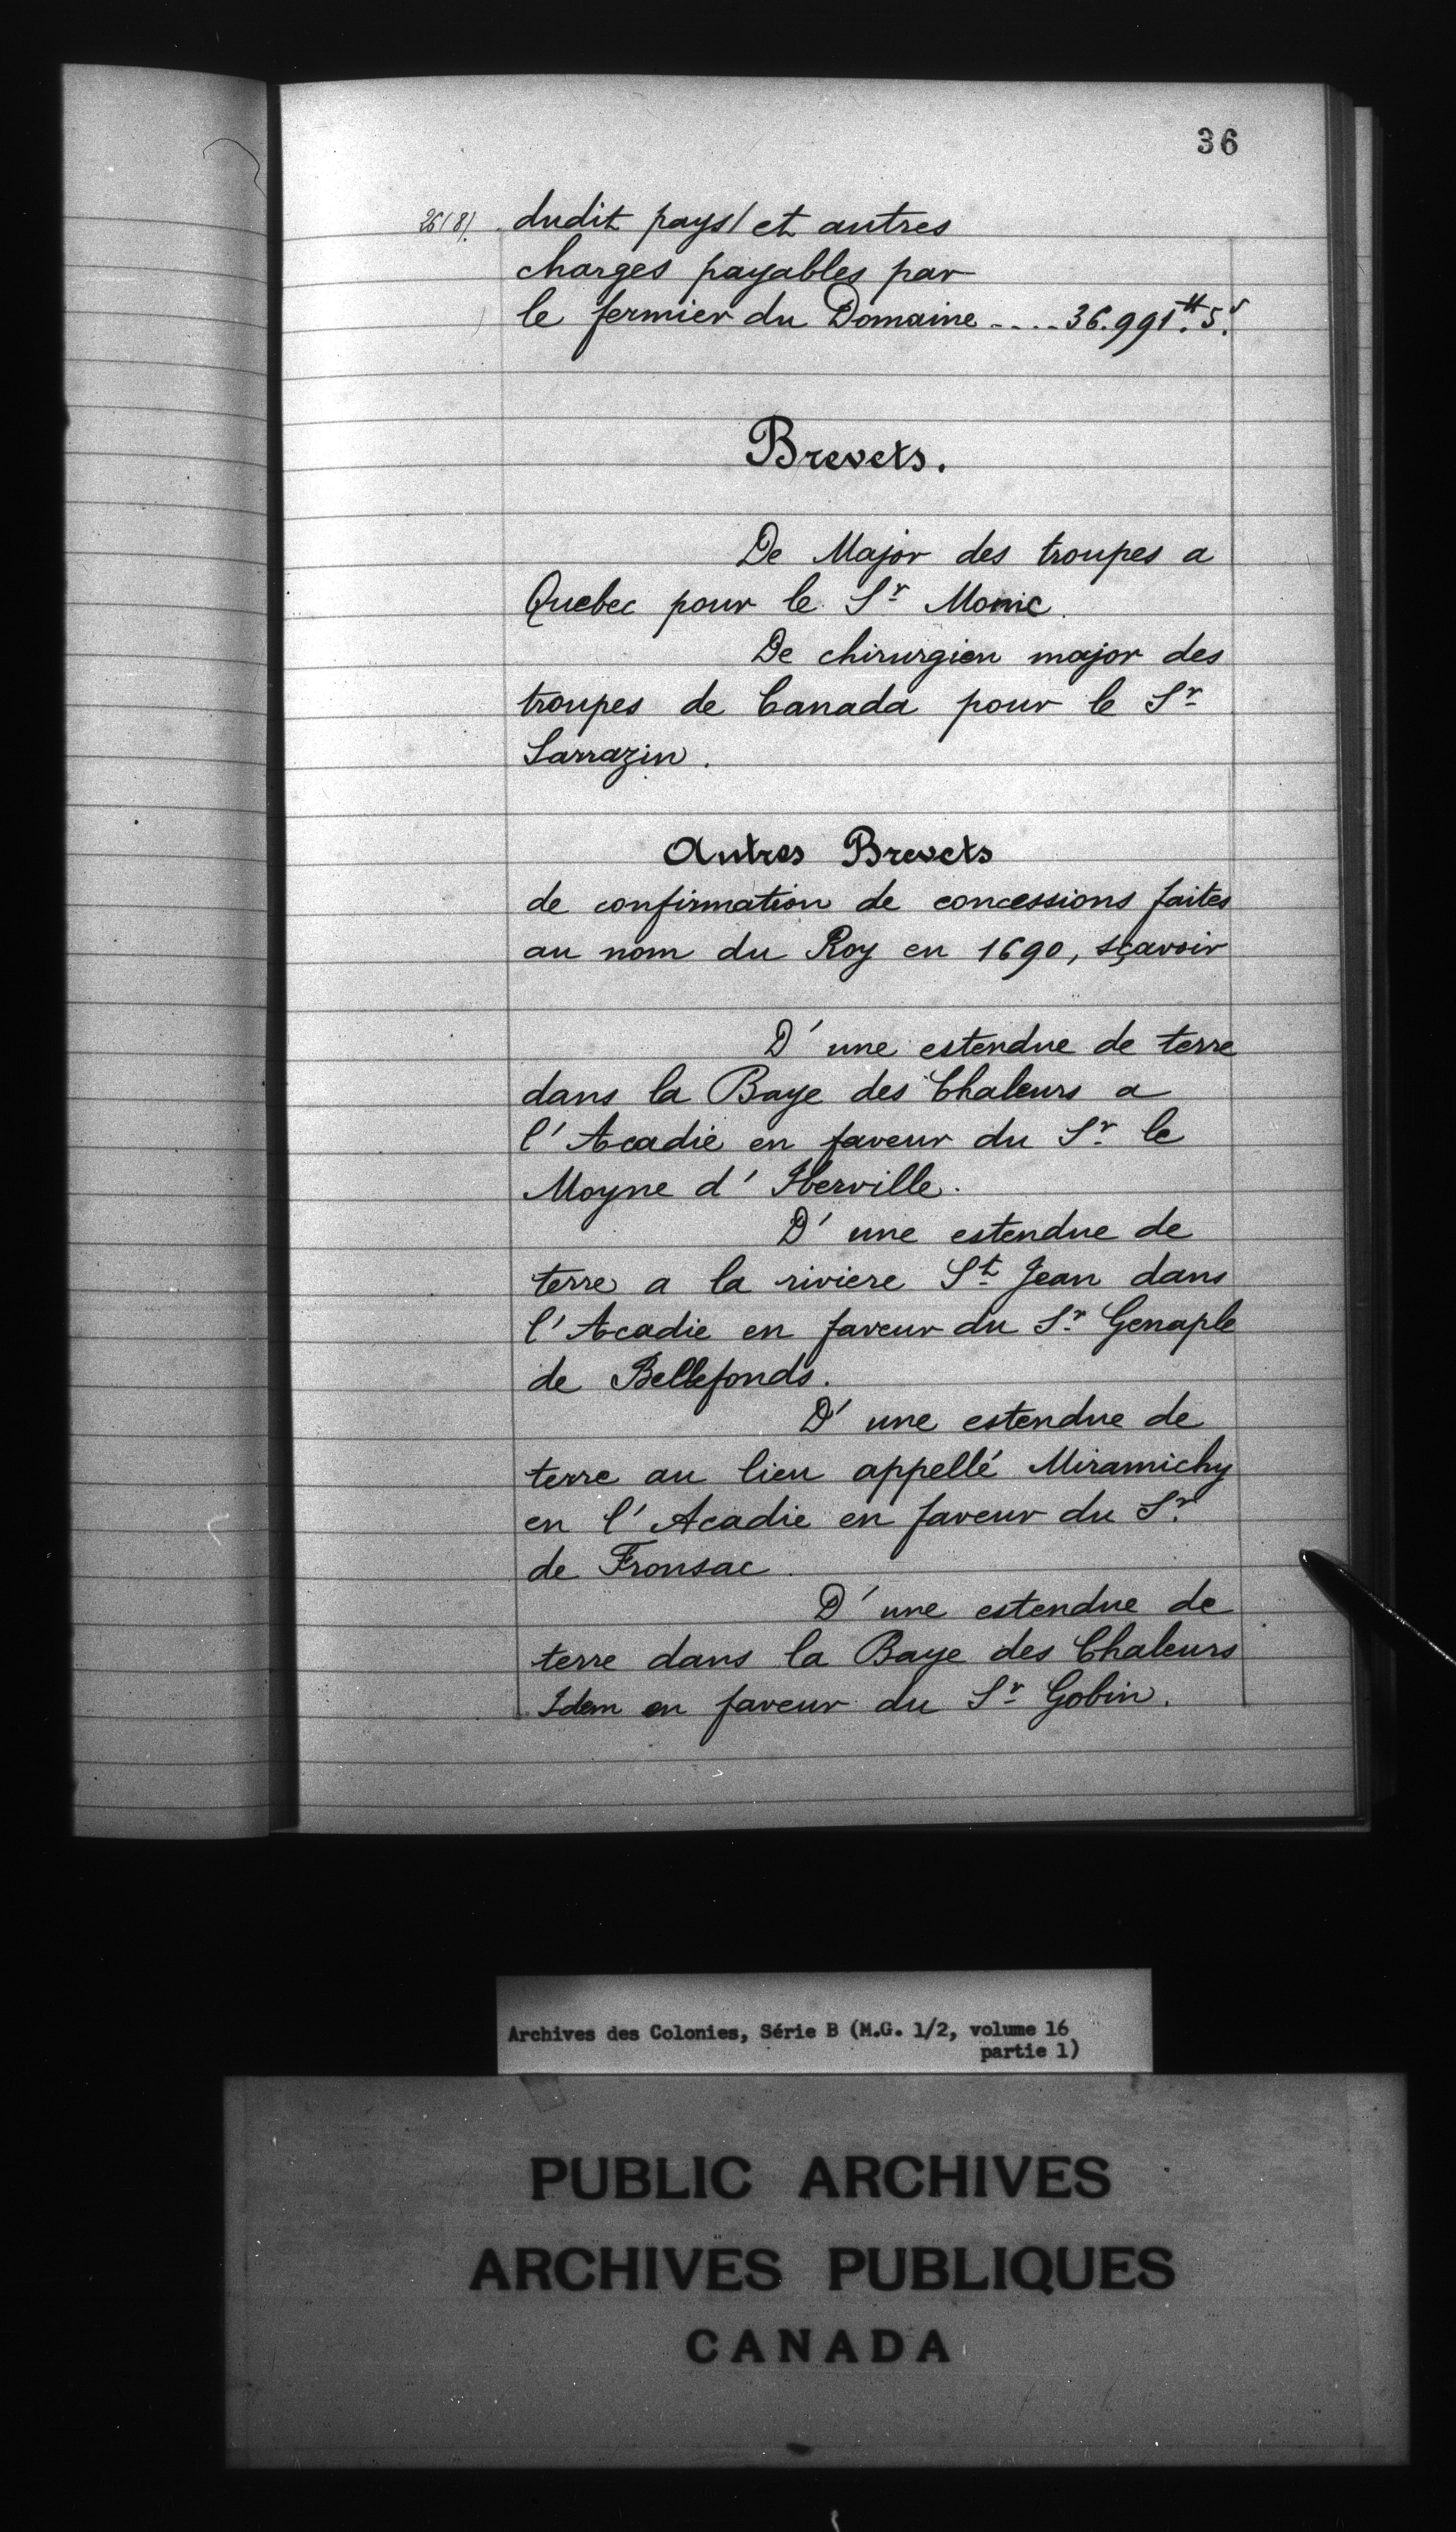 36
26(8). dudit pays/ et autres
charges payables par
le fermier du Domaine .... 36.991tt.5s.
Brevets.
De Major des troupes a
Quebec pour le Sr Monic.
De chirurgien major des
troupes de Canada pour le Sr
Sarrazin.
Autres Brevets
de confirmation de concessions faites
au nom du Roy en 1690, sçavoir
D'une estendue de terre
dans la Baye des Chaleurs a
l'Acadie en faveur du Sr le
Moyne d'Iberville.
D'une estendue de
terre a la riviere St Jean dans
l'Acadie en faveur du Sr Genaple
de Bellefonds.
D'une estendue de
terre au lieu appellé Miramichy
en l'Acadie en faveur du Sr
de Fronsac.
D'une estendue de
terre dans la Baye des Chaleurs
Idem en faveur du Sr Gobin.
Archives des Colonies, Série B (M.G. 1/2, volume 16
partie 1)
PUBLIC ARCHIVES
ARCHIVES PUBLIQUES
CANADA